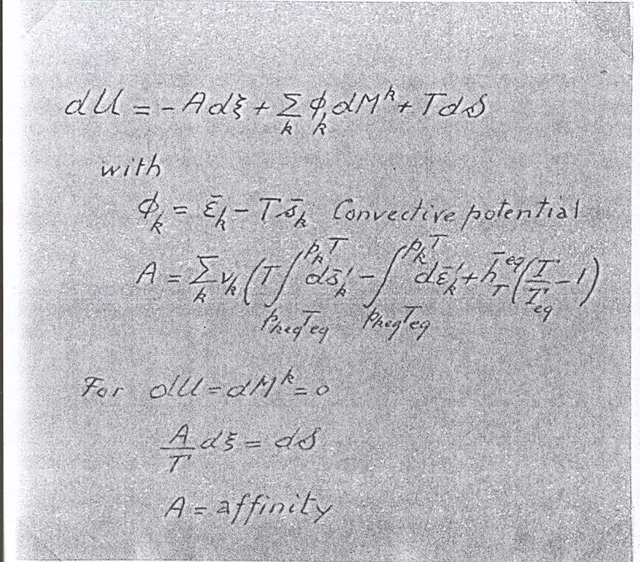 dU = - A dξ + Σ_k ϕ_k dM^k + T dS
with
ϕ_k = ε̄_k - T s̄_k Convective potential
A = Σ_k ν_k (T ∫_{p_keq T_eq}^{p_k T} ds̄'_k - ∫_{p_keq T_eq}^{p_k T} dε̄'_k + h̄_T^eq (T/T_eq - 1)
For dU = dM^k = 0
A/T dξ = dS
A = affinity